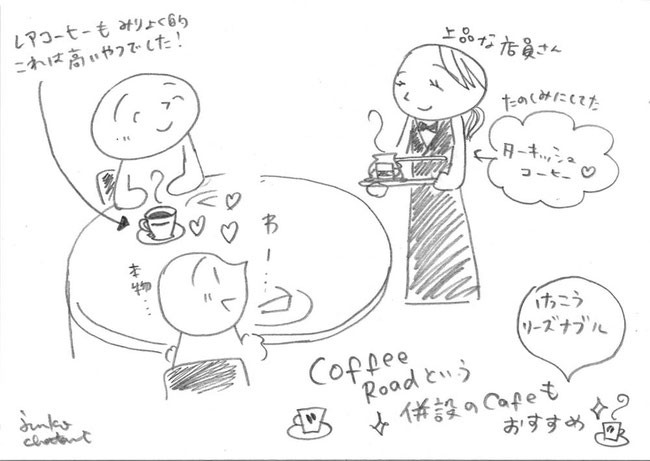 レアコーヒーもみりょく的
これは高いやつでした！
上品な店員さん
たのしみにしてた
ターキッシュ
コーヒー♡
わー…
本物…
けっこう
リーズナブル
Coffee
Roadという
併設のCafeも
おすすめ